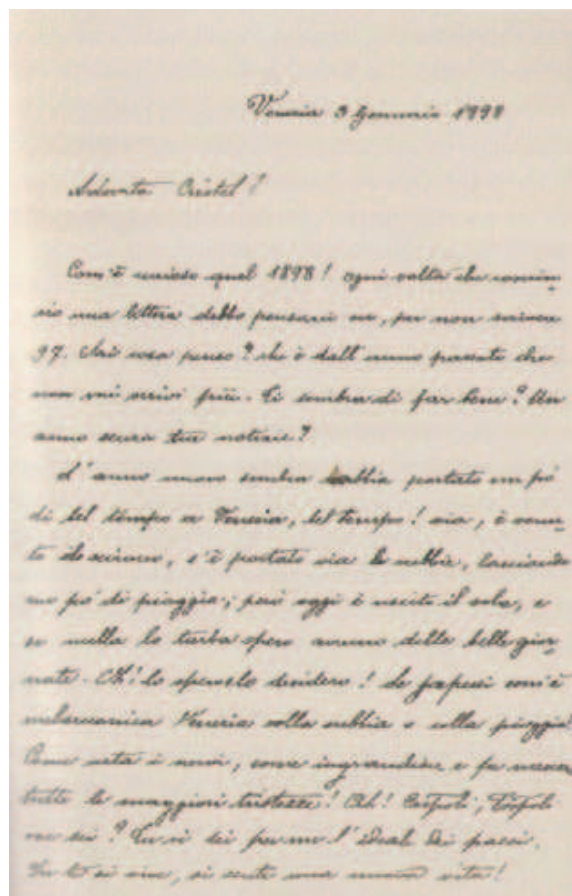 Venezia 3 Gennaio 1898
Adorato Cristel!
Com'è curioso quel 1898! ogni volta che comin-
cio una lettera debbo pensarci su, per non scrivere
97. Sai cosa penso? che è dall'anno passato che
non mi scrivi più. Ti sembra di far bene? Un
anno senza tue notizie?
L'anno nuovo sembra abbia portato un po'
di bel tempo a Venezia, bel tempo! via, è venu-
to lo scirocco, s'è portato via la nebbia, lasciando
un po' di pioggia; però oggi è uscito il sole, e
se nulla lo turba spero avremo delle belle gior-
nate. Oh! lo spero e lo desidero! Se sapessi com'è
melanconica Venezia colla nebbia e colla pioggia!
Come urta i nervi, come ingrandisce e fa
tutte le maggiori tristezze! Ah! Tripoli, Tripoli
ove sei? Tu sei per me l'ideal dei paesi.
In te si vive, si sente una nuova vita!